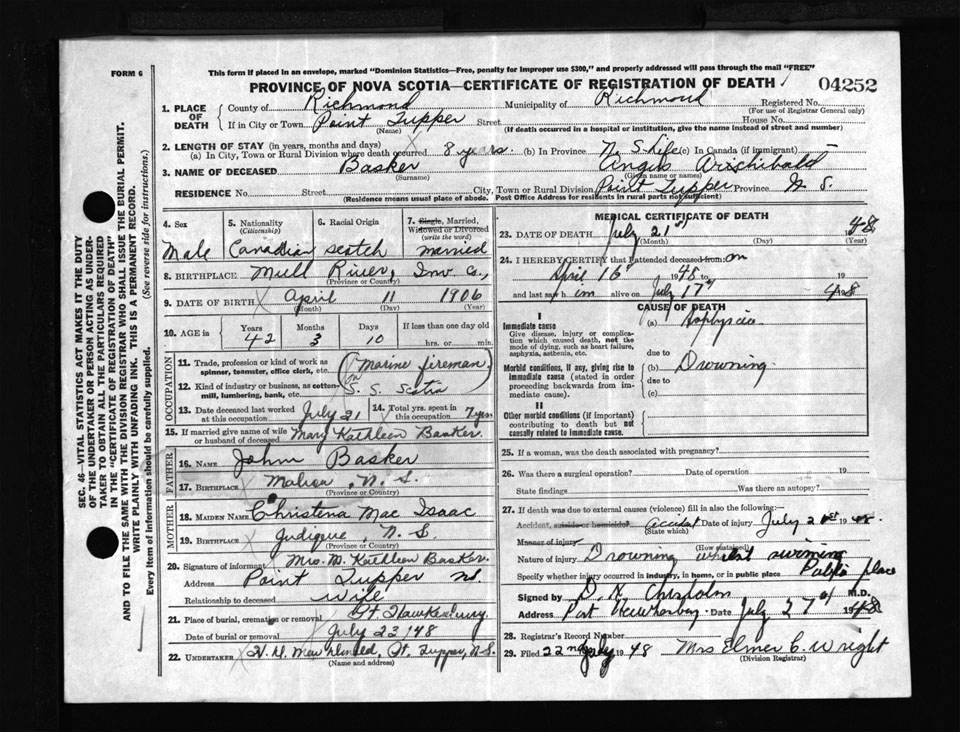 This form if placed in an envelope, marked "Dominion Statistics—Free, penalty for improper use $300," and properly addressed will pass through the mail "FREE"
FORM 6
PROVINCE OF NOVA SCOTIA—CERTIFICATE OF REGISTRATION OF DEATH
04252
1. PLACE OF DEATH
County of Richmond Municipality of Richmond Registered No.
(For use of Registrar General only)
If in City or Town Point Tupper Street House No.
(Name) (If death occurred in a hospital or institution, give the name instead of street and number)
2. LENGTH OF STAY (in years, months and days)
(a) In City, Town or Rural Division where death occurred 8 years. (b) In Province N. S. Life (c) In Canada (if immigrant) —
3. NAME OF DECEASED Basker Angus Archibald
(Surname) (Given name or names)
RESIDENCE No. Street City, Town or Rural Division Point Tupper Province N. S.
(Residence means usual place of abode. Post Office Address for residents in rural parts not sufficient)
4. Sex 5. Nationality 6. Racial Origin 7. Single, Married,
(Citizenship) Widowed or Divorced
(write the word)
Male Canadian Scotch married
8. BIRTHPLACE Mull River, Inv Co,
(Province or Country)
9. DATE OF BIRTH April 11 1906
(Month) (Day) (Year)
10. AGE in Years Months Days If less than one day old
42 3 10 hrs. or min.
OCCUPATION
11. Trade, profession or kind of work as spinner, teamster, office clerk, etc. Marine fireman
12. Kind of industry or business, as cotton-mill, lumbering, bank, etc. on S. S. Scotia
13. Date deceased last worked at this occupation July 21 14. Total yrs. spent in this occupation 7 yrs
15. If married give name of wife or husband of deceased Mary Kathleen Basker.
FATHER
16. NAME John Basker
17. BIRTHPLACE Mabou, N. S.
(Province or Country)
MOTHER
18. MAIDEN NAME Christena Mac Isaac
19. BIRTHPLACE Judique, N. S.
(Province or Country)
20. Signature of informant Mrs. M. Kathleen Basker.
Address Point Tupper N.S.
Relationship to deceased Wife
21. Place of burial, cremation or removal Pt. Hawkesbury
Date of burial or removal July 23/48
22. UNDERTAKER H. D. MacDonald, Pt. Tupper, N.S.
(Name and address)
MEDICAL CERTIFICATE OF DEATH
23. DATE OF DEATH July 21st 48
(Month) (Day) (Year)
24. I HEREBY CERTIFY that I attended deceased from: on
April 16 1948 to 19
and last saw him alive on July 17th 1948
CAUSE OF DEATH
I
Immediate cause
Give disease, injury or complication which caused death, not the mode of dying, such as heart failure, asphyxia, asthenia, etc.
(a) Asphyxia
due to
Morbid conditions, if any, giving rise to immediate cause (stated in order proceeding backwards from immediate cause).
(b) Drowning
due to
(c)
II
Other morbid conditions (if important) contributing to death but not causally related to immediate cause.
25. If a woman, was the death associated with pregnancy?
26. Was there a surgical operation? Date of operation 19
State findings Was there an autopsy?
27. If death was due to external causes (violence) fill in also the following:—
Accident, suicide or homicide? Accident Date of injury July 21st 1948.
(State which)
Manner of injury
(How sustained)
Nature of injury Drowning whilst swiming
Specify whether injury occurred in industry, in home, or in public place Public place
Signed by D. K. Chisholm M.D.
Address Port Hawkesbury Date July 27th 1948
28. Registrar's Record Number
29. Filed 22nd July 1948 Mrs Elmer C. Wright
(Division Registrar)
SEC. 46—VITAL STATISTICS ACT MAKES IT THE DUTY OF THE UNDERTAKER OR PERSON ACTING AS UNDERTAKER TO OBTAIN ALL THE PARTICULARS REQUIRED IN THE "CERTIFICATE OF REGISTRATION OF DEATH" AND TO FILE THE SAME WITH THE DIVISION REGISTRAR WHO SHALL ISSUE THE BURIAL PERMIT.
WRITE PLAINLY WITH UNFADING INK. THIS IS A PERMANENT RECORD.
Every item of information should be carefully supplied. (See reverse side for instructions.)